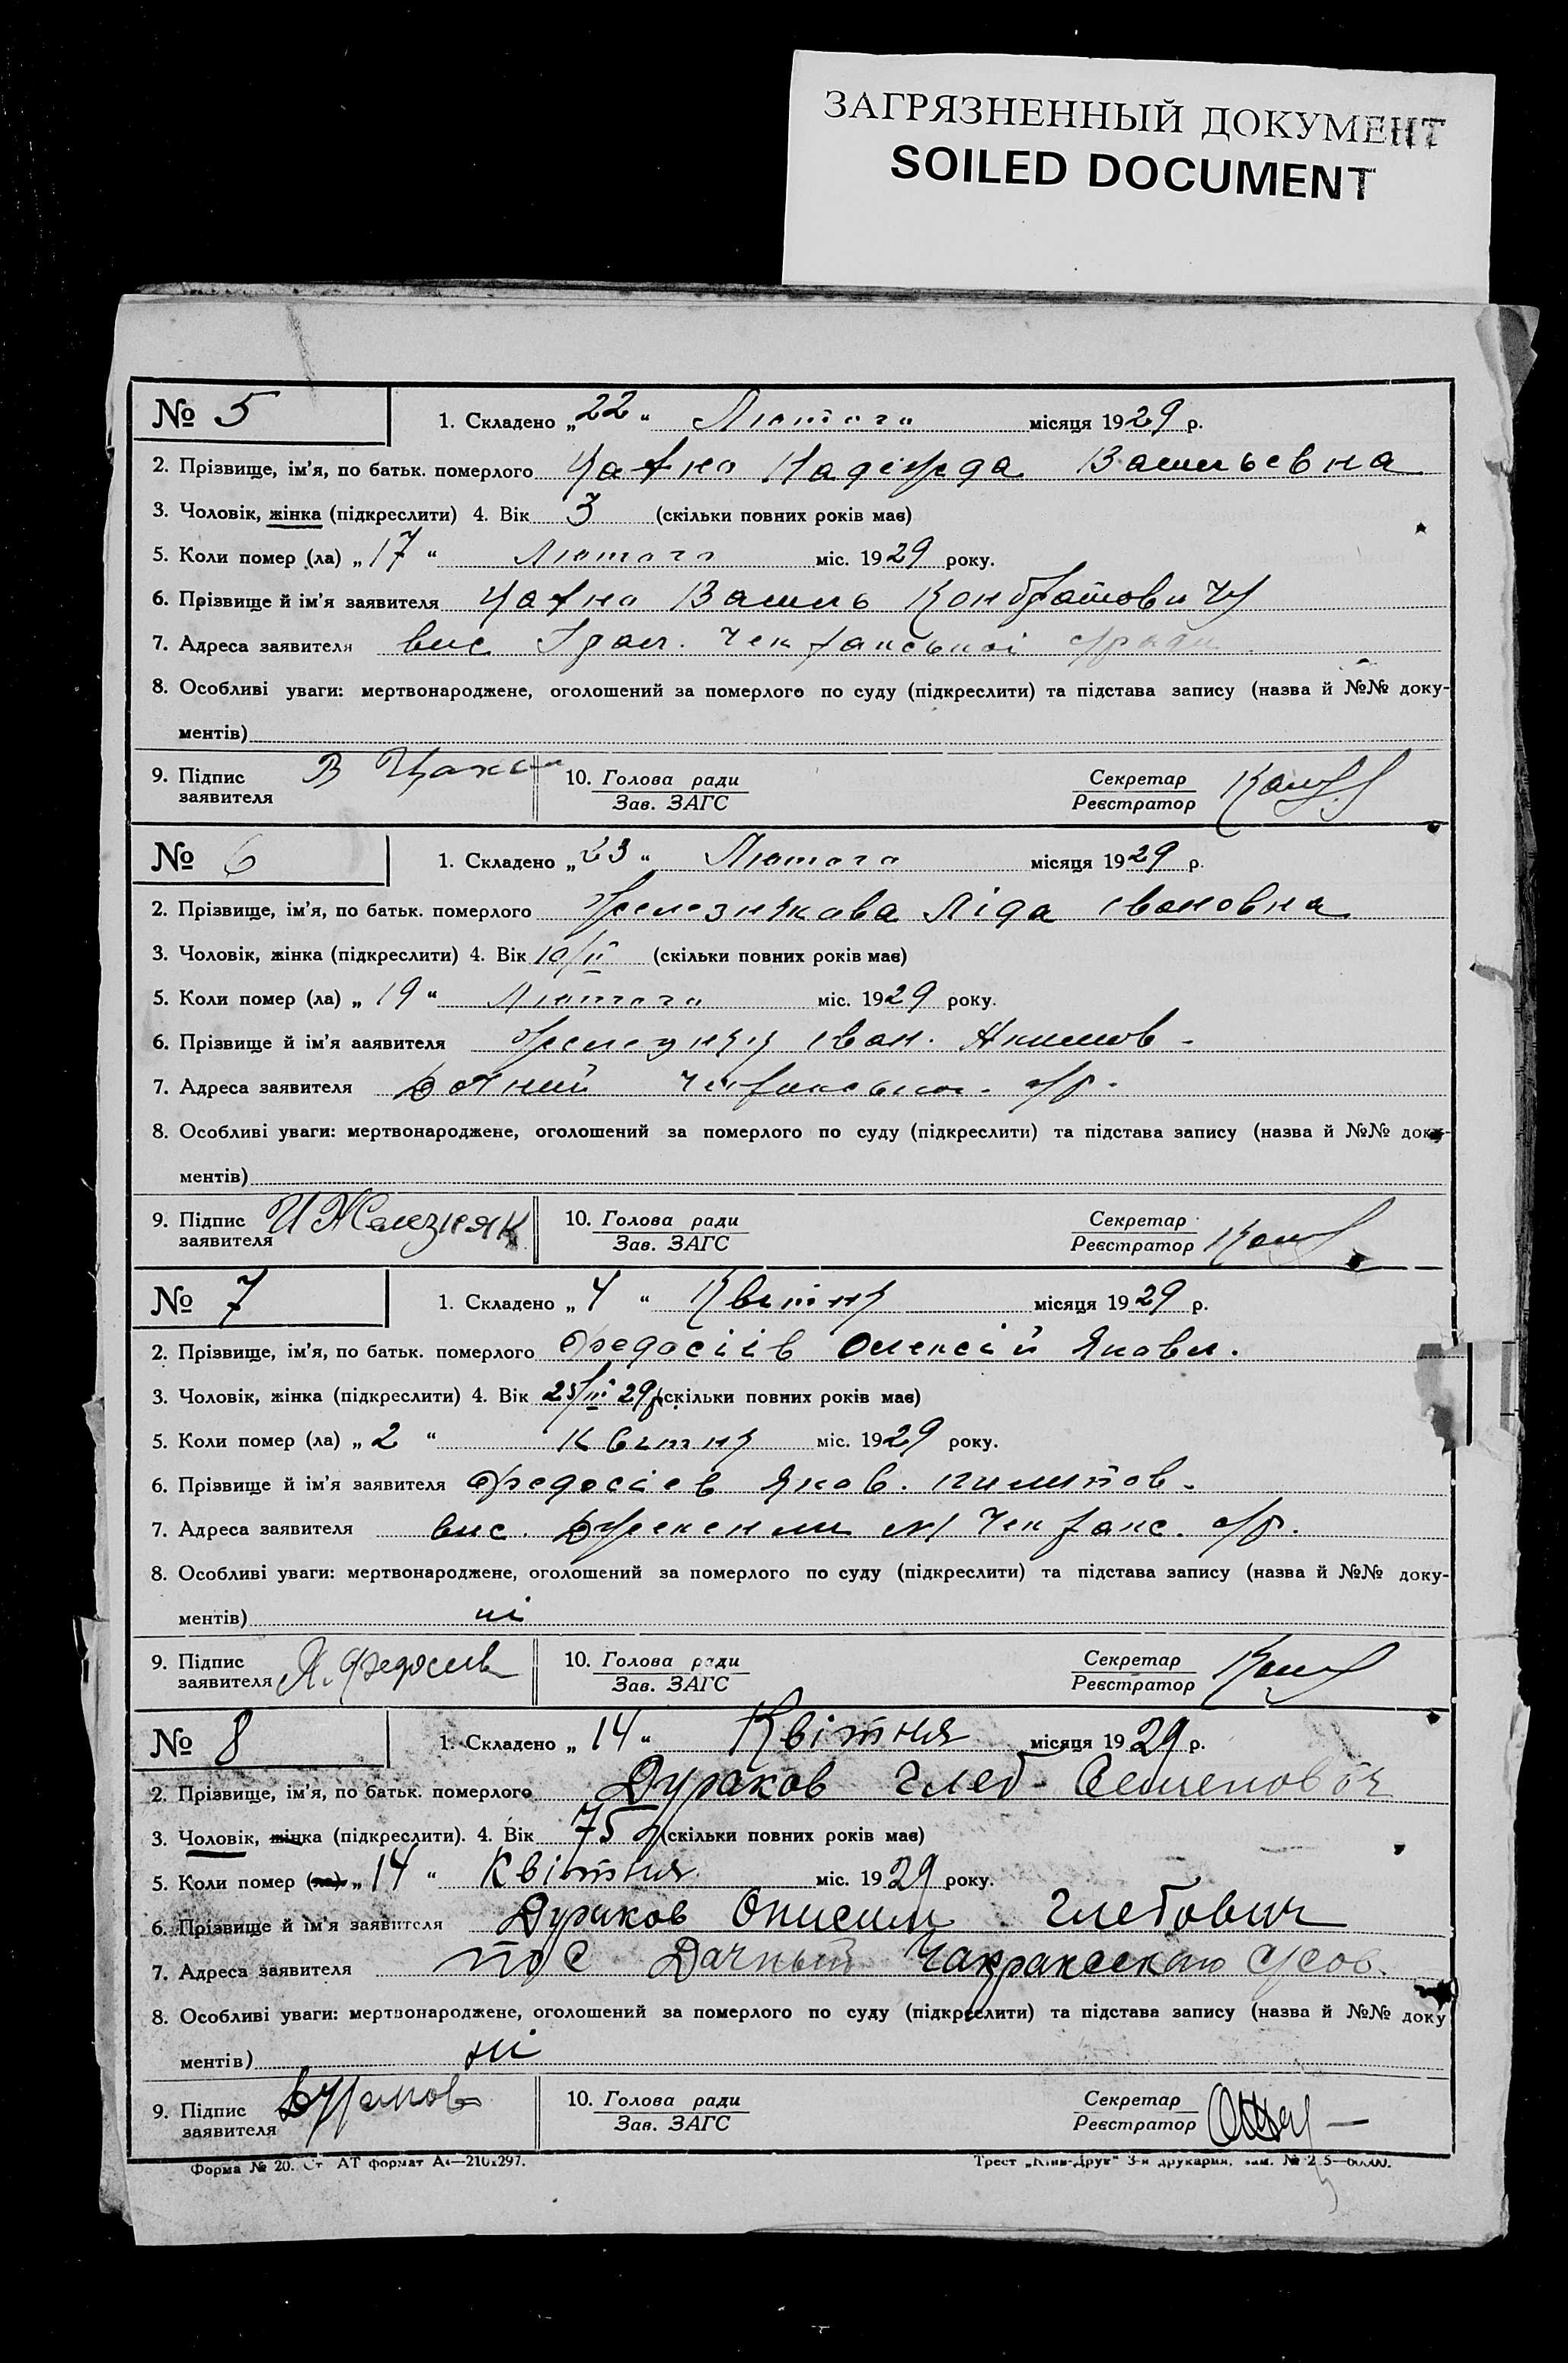 ЗАГРЯЗНЕННЫЙ ДОКУМЕНТ
SOILED DOCUMENT
№ 5
1. Складено „22“ Лютого місяця 1929 р.
2. Прізвище, ім'я, по батьк. померлого Надежда Васильевна
3. Чоловік, жінка (підкреслити) 4. Вік 3 (скільки повних років має)
5. Коли помер (ла) „17“ Лютого міс. 1929 року.
6. Прізвище й ім'я заявителя Василь Кондратович
7. Адреса заявителя вис
8. Особливі уваги: мертвонароджене, оголошений за померлого по суду (підкреслити) та підстава запису (назва й №№ доку-
ментів)
9. Підпис заявителя В 10. Голова ради Секретар
Зав. ЗАГС Реєстратор
№ 6
1. Складено „23“ Лютого місяця 1929 р.
2. Прізвище, ім'я, по батьк. померлого Железнякова Ліда Івановна
3. Чоловік, жінка (підкреслити) 4. Вік 10/II (скільки повних років має)
5. Коли помер (ла) „19“ Лютого міс. 1929 року.
6. Прізвище й ім'я заявителя Іван.
7. Адреса заявителя Дачний
8. Особливі уваги: мертвонароджене, оголошений за померлого по суду (підкреслити) та підстава запису (назва й №№ доку-
ментів)
9. Підпис заявителя И Железняк 10. Голова ради Секретар
Зав. ЗАГС Реєстратор
№ 7
1. Складено „4“ Квітня місяця 1929 р.
2. Прізвище, ім'я, по батьк. померлого Федосіів Олексій Яковл.
3. Чоловік, жінка (підкреслити) 4. Вік 25/III 29р (скільки повних років має)
5. Коли помер (ла) „2“ Квітня міс. 1929 року.
6. Прізвище й ім'я заявителя Федосієв Яков.
7. Адреса заявителя вис.
8. Особливі уваги: мертвонароджене, оголошений за померлого по суду (підкреслити) та підстава запису (назва й №№ доку-
ментів) ні
9. Підпис заявителя Я. Федосиев 10. Голова ради Секретар
Зав. ЗАГС Реєстратор
№ 8
1. Складено „14“ Квітня місяця 1929 р.
2. Прізвище, ім'я, по батьк. померлого Дураков Глеб Семенович
3. Чоловік, жінка (підкреслити). 4. Вік 75 (скільки повних років має)
5. Коли помер (ла) „14“ Квітня міс. 1929 року.
6. Прізвище й ім'я заявителя Дураков Онисим Глебович
7. Адреса заявителя пос Дачный Чакракскаго с/сов.
8. Особливі уваги: мертвонароджене, оголошений за померлого по суду (підкреслити) та підстава запису (назва й №№ доку
ментів) ні
9. Підпис заявителя Дураков 10. Голова ради Секретар
Зав. ЗАГС Реєстратор
Форма № 20. Ст АТ формат А4—210х297. Трест „Київ-Друк“ 3-я друкарня,